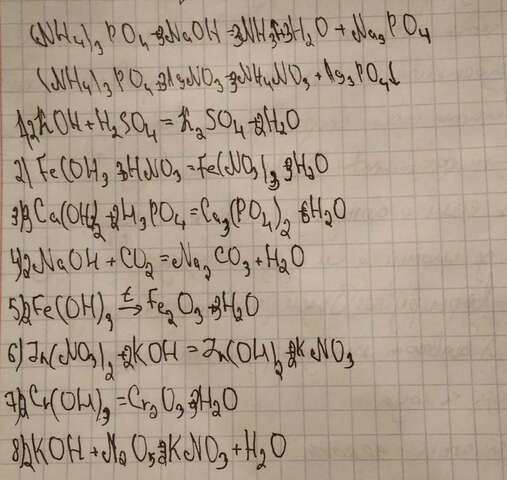 (NH4)3PO4+3NaOH=3NH3↑+3H2O + Na3PO4
(NH4)3PO4+3AgNO3=3NH4NO3+Ag3PO4↓
1)2KOH+H2SO4=K2SO4+2H2O
2)Fe(OH)3+3HNO3=Fe(NO3)3+3H2O
3)3Ca(OH)2+2H3PO4=Ca3(PO4)2+6H2O
4)2NaOH+CO2=Na2CO3+H2O
5)2Fe(OH)3 t→ Fe2O3+3H2O
6)Zn(NO3)2+2KOH=Zn(OH)2+2KNO3
7)2Cr(OH)3=Cr2O3+3H2O
8)2KOH+N2O5=2KNO3+H2O